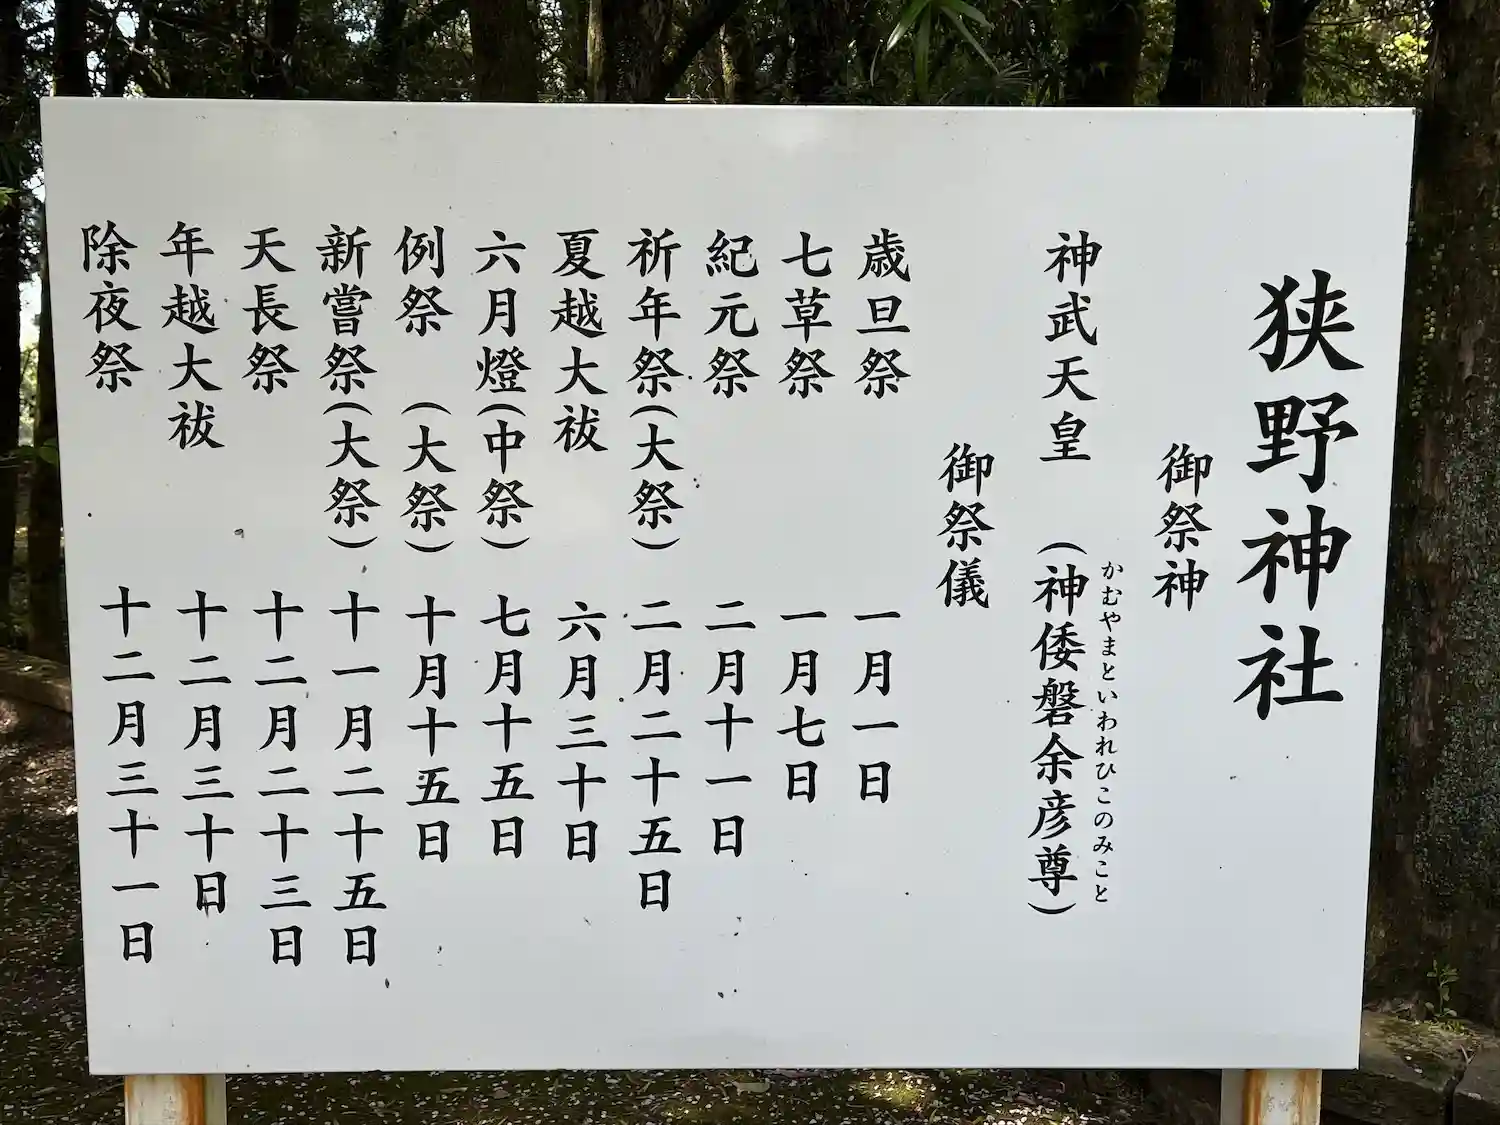 狭野神社
御祭神
神武天皇　（神倭磐余彦尊）
かむやまといわれひこのみこと
御祭儀
歳旦祭　一月一日
七草祭　一月七日
紀元祭　二月十一日
祈年祭（大祭）　二月二十五日
夏越大祓　六月三十日
六月燈（中祭）　七月十五日
例祭　（大祭）　十月十五日
新嘗祭（大祭）　十一月二十五日
天長祭　十二月二十三日
年越大祓　十二月三十日
除夜祭　十二月三十一日